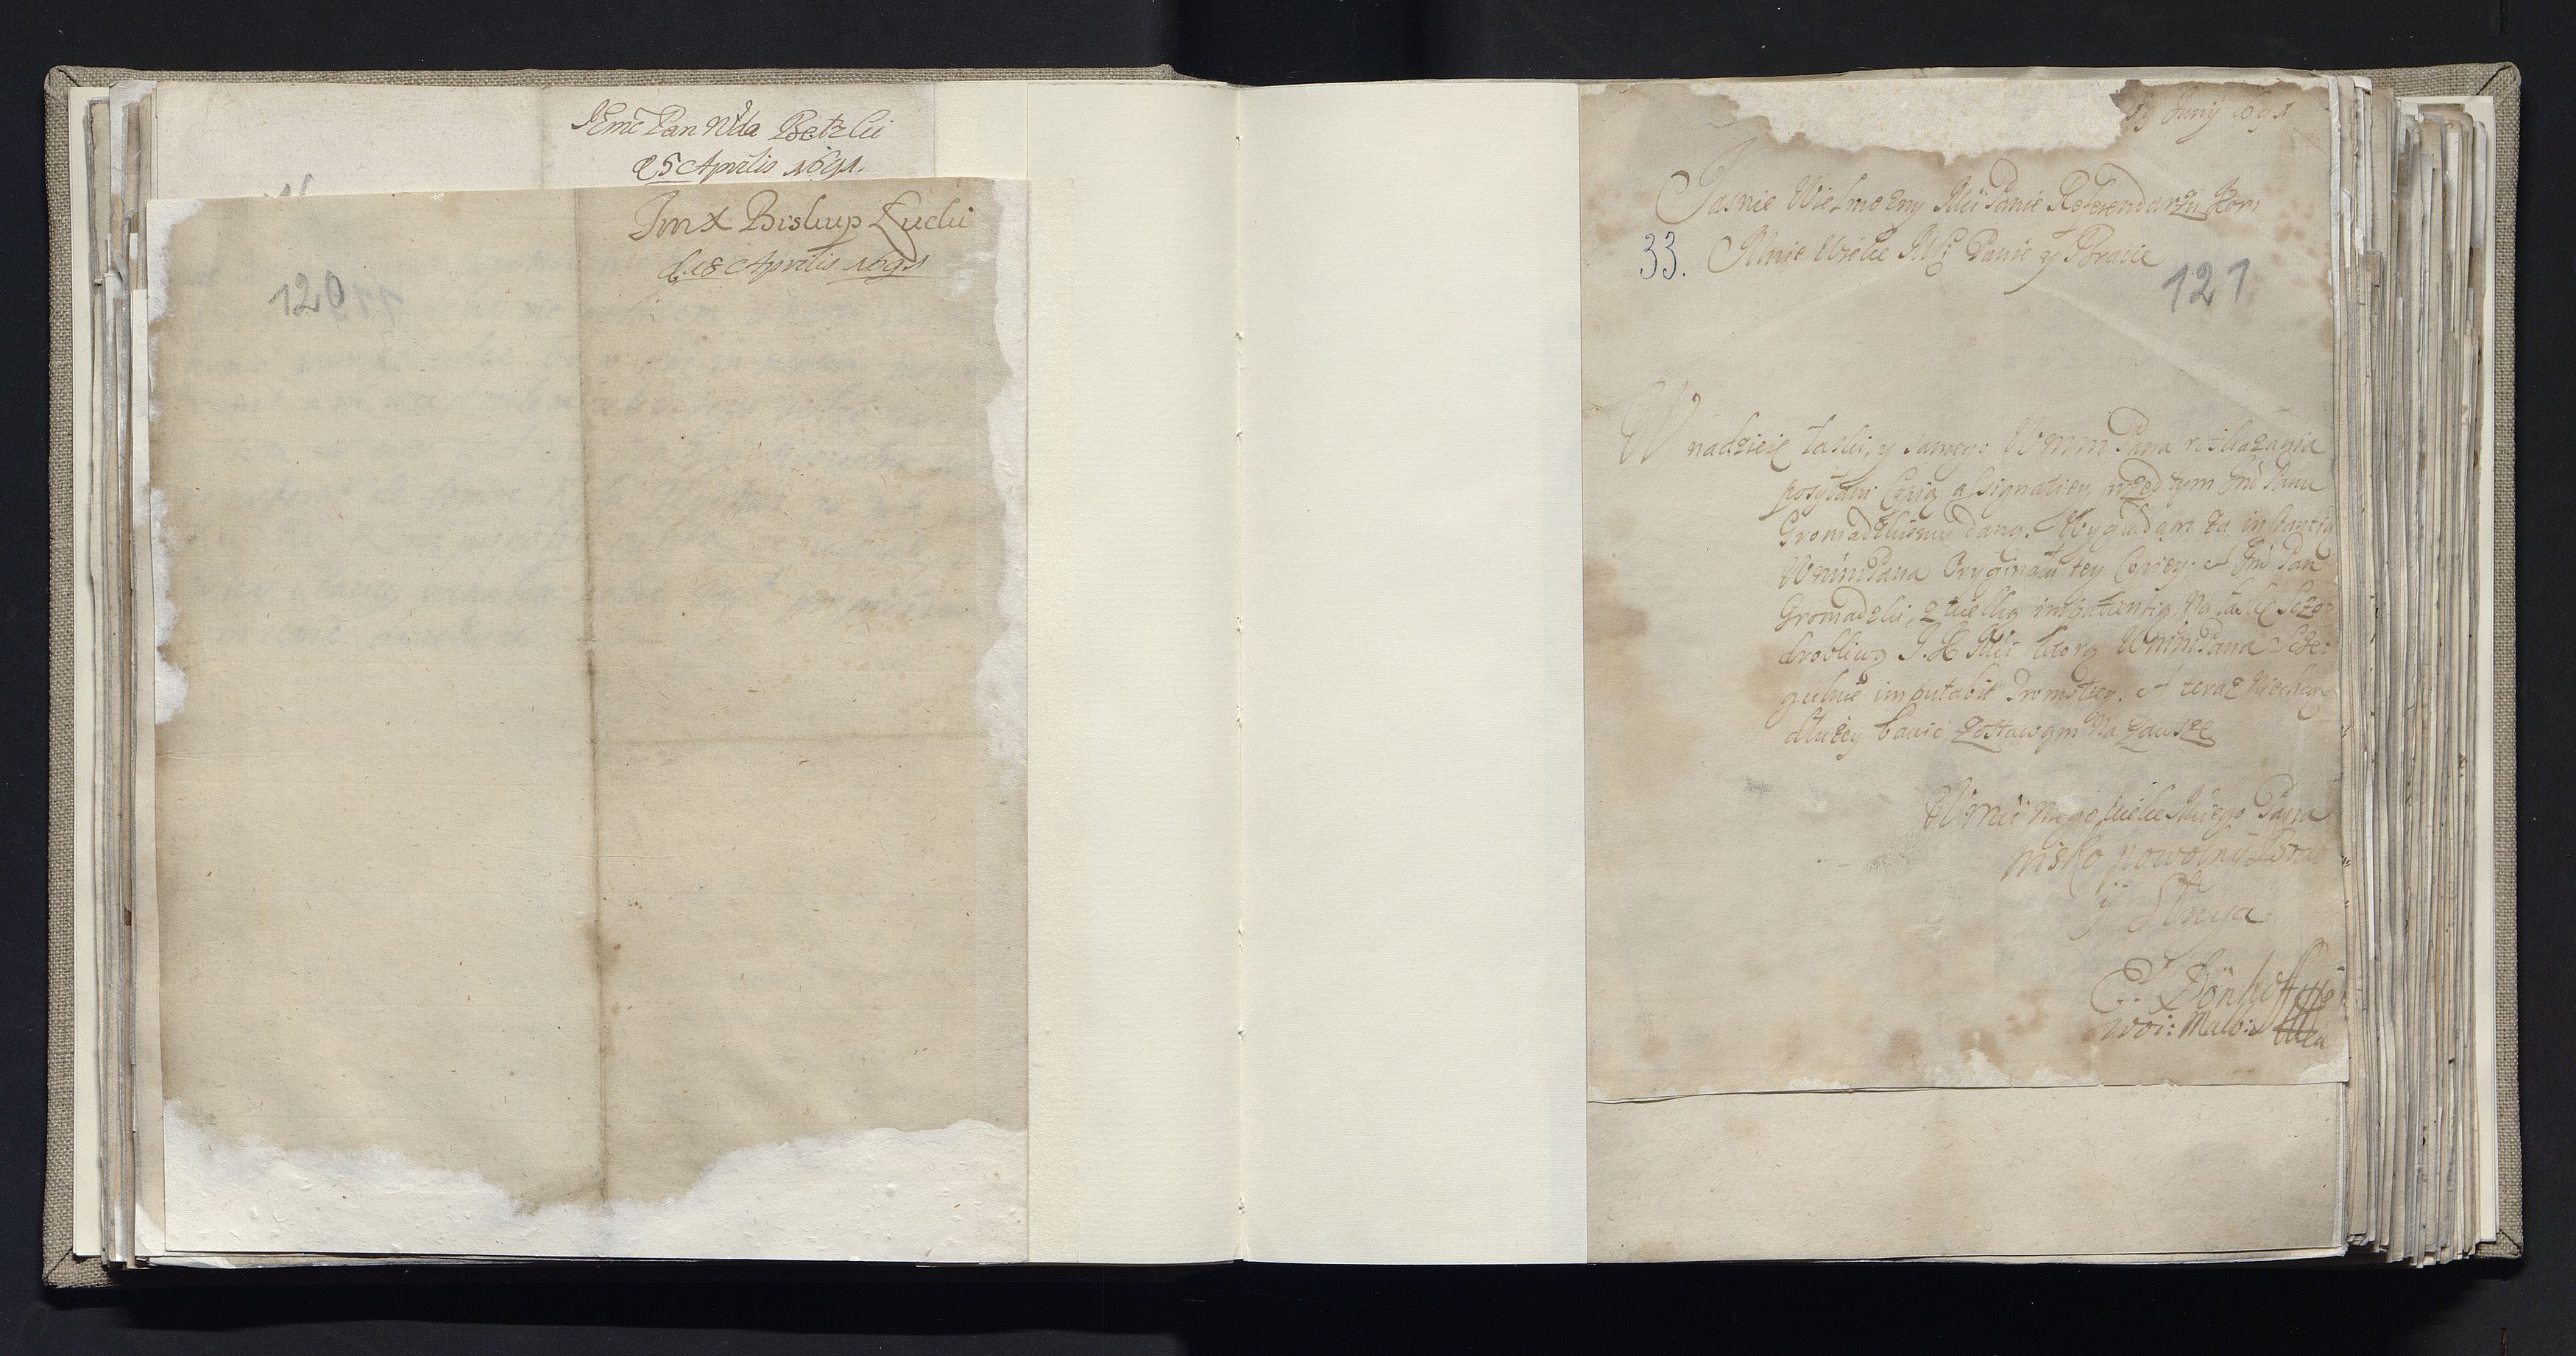 JEmc Pan Wda Bełzki
25 Aprilis 1691.
Jmx Biskup Łucki
d. 18 Aprilis 1691
120
19 Juny 1691
Jasnie Wielmozny Mci Panie Referendarzu Kor:
33. Mnie Wielce Mci Panie y Bracie
121
W nadzieię łaski, y samego WMM Pana roskazania
posyłam Copią assignatiey, przed tym Jmci Panu
Gromadzkiemu daną. Wyglądam za instantią
WMM Pana Oryginału tey Copiey. A Jmć Pan
Gromadzki, z wielką impatientią, na łaskę Szcze-
drobliwą J. K. Mci ktorą WMM Pana Szcze-
gulnie imputabit Promotiey. A teraz niechcąc
dłużey bawić zostawam na zawsze
WMci mego Wielce Mciego Pana
nisko powolny Brat
y Sługa
E. Dönhoff
woi: Malb: